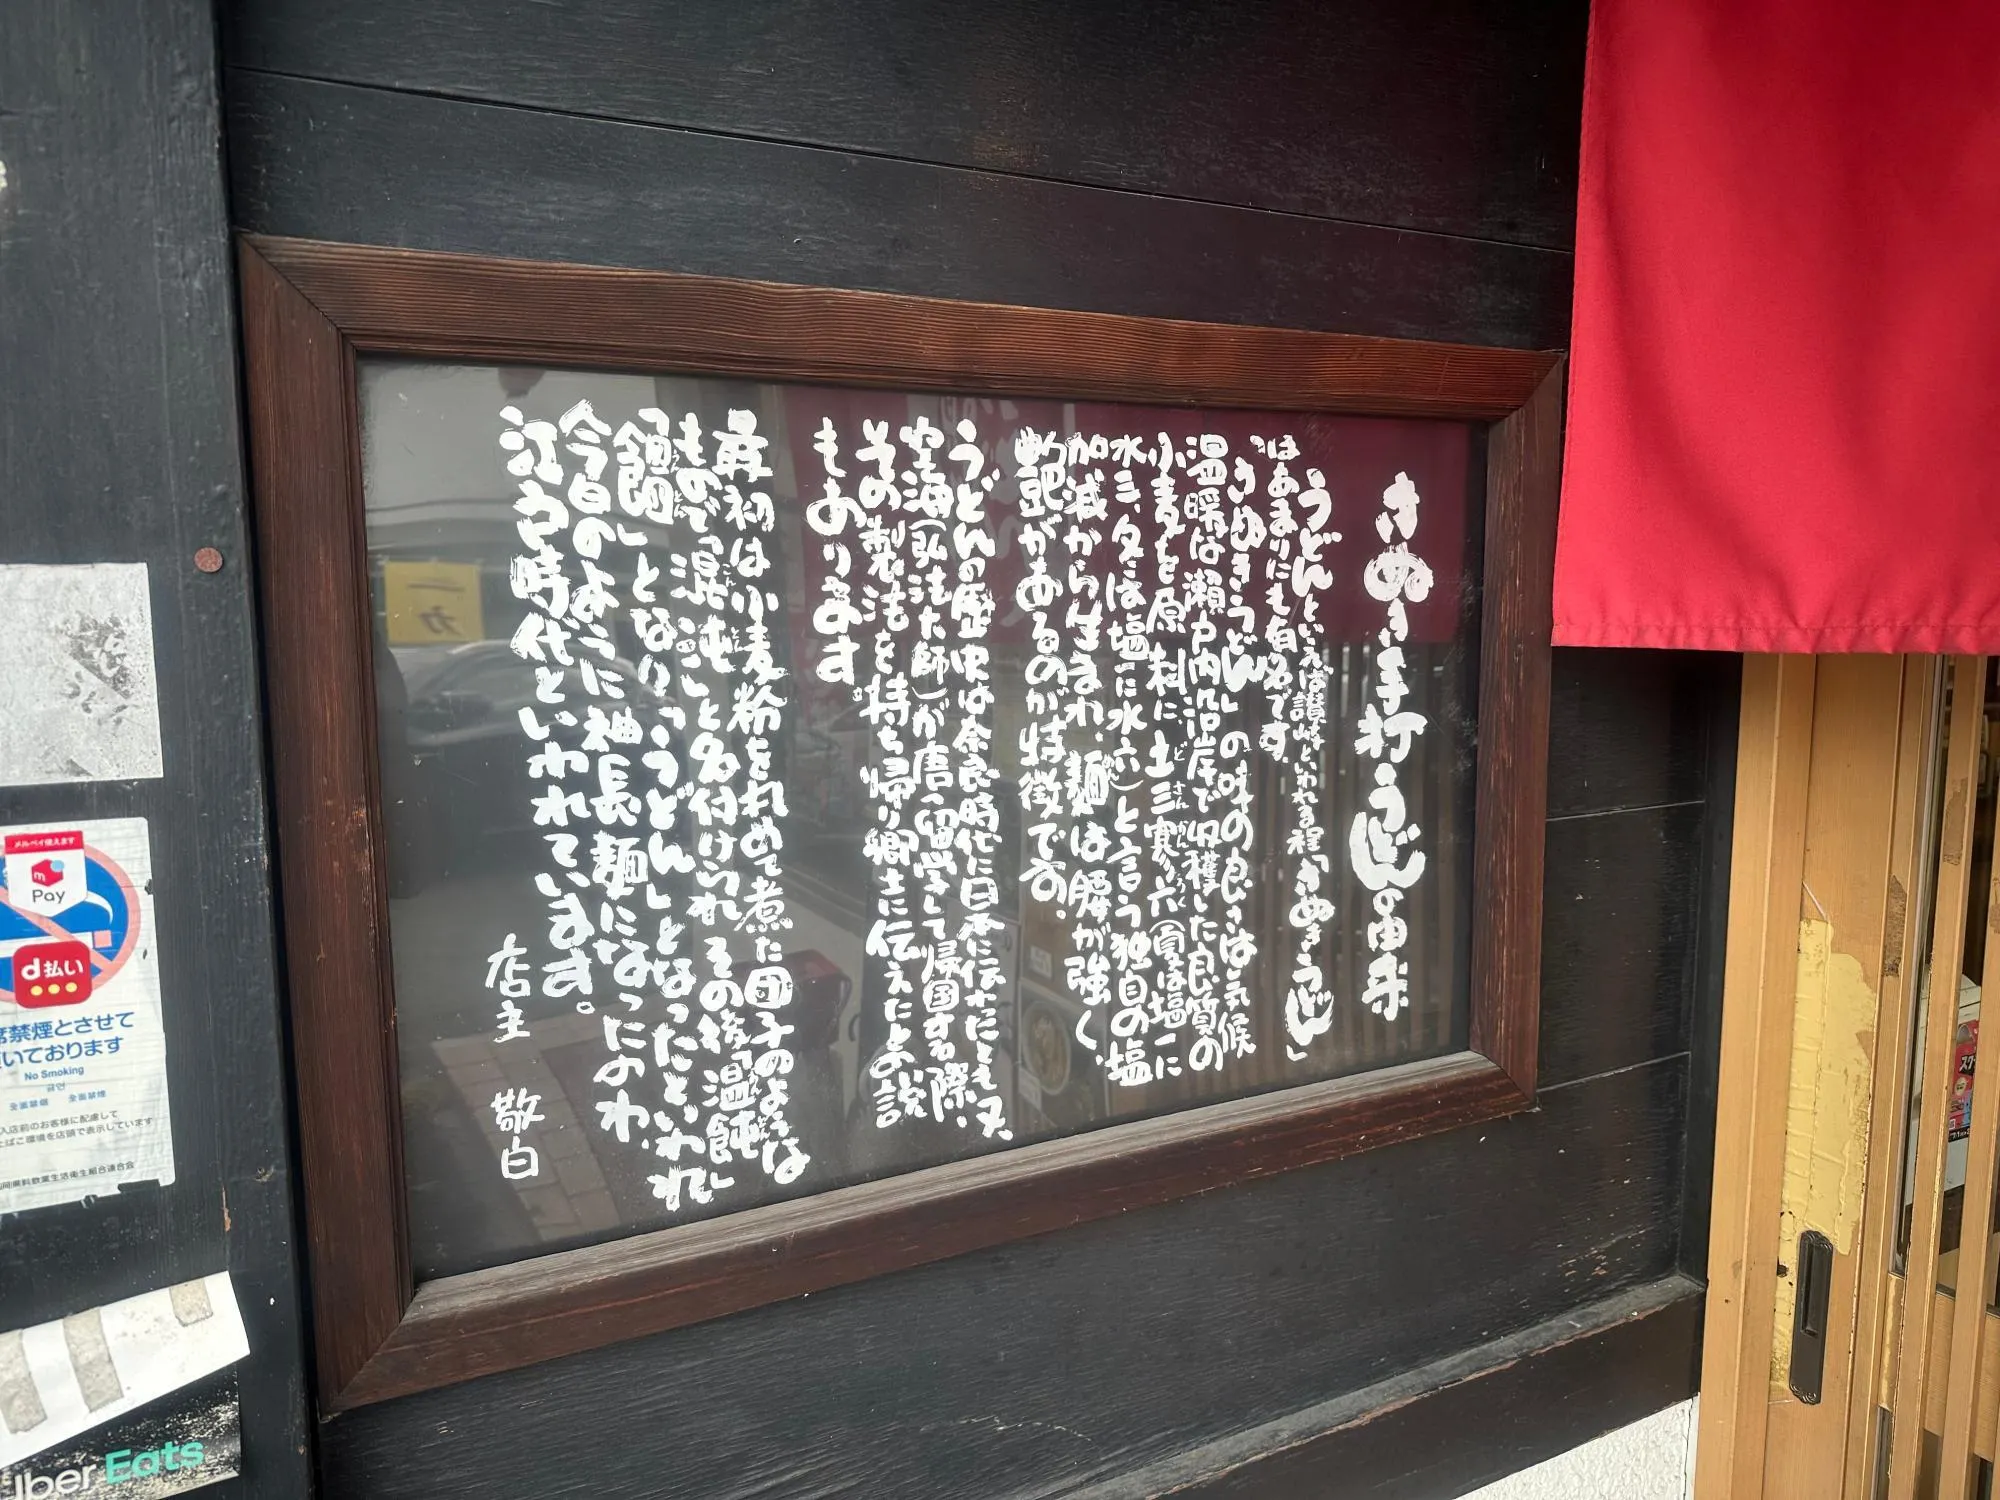 さぬき手打うどんの由来
うどんといえば讃岐といわれる程「さぬきうどん」
はあまりにも有名です。
「さぬきうどん」の味の良さは気候
温暖な瀬戸内沿岸で収穫した良質の
小麦を原料に、土三寒六(夏は塩一に
水三、冬は塩一に水六)と言う独自の塩
加減から生まれ、麺は腰が強く、
艶があるのが特徴です。
うどんの歴史は奈良時代に日本に伝わったとも又、
空海(弘法大師)が唐へ留学して帰国する際、
その製法を持ち帰り郷土に伝えたとの説
もあります。
最初は小麦粉をまるめて煮た団子のようなは
もので「混沌」と名付けられその後「温飩」
「饂飩」となり「うどん」となったといわれ
今日のように細長麺になったのわ、
江戸時代といわれています。
店主 敬白
メルペイ使えます
Pay
d払い
席禁煙とさせて
いております
No Smoking
금연
全面禁烟 全面禁煙
入店前のお客様に配慮して
たばこ環境を店頭で表示しています
岡県料飲業生活衛生組合連合会
Uber Eats